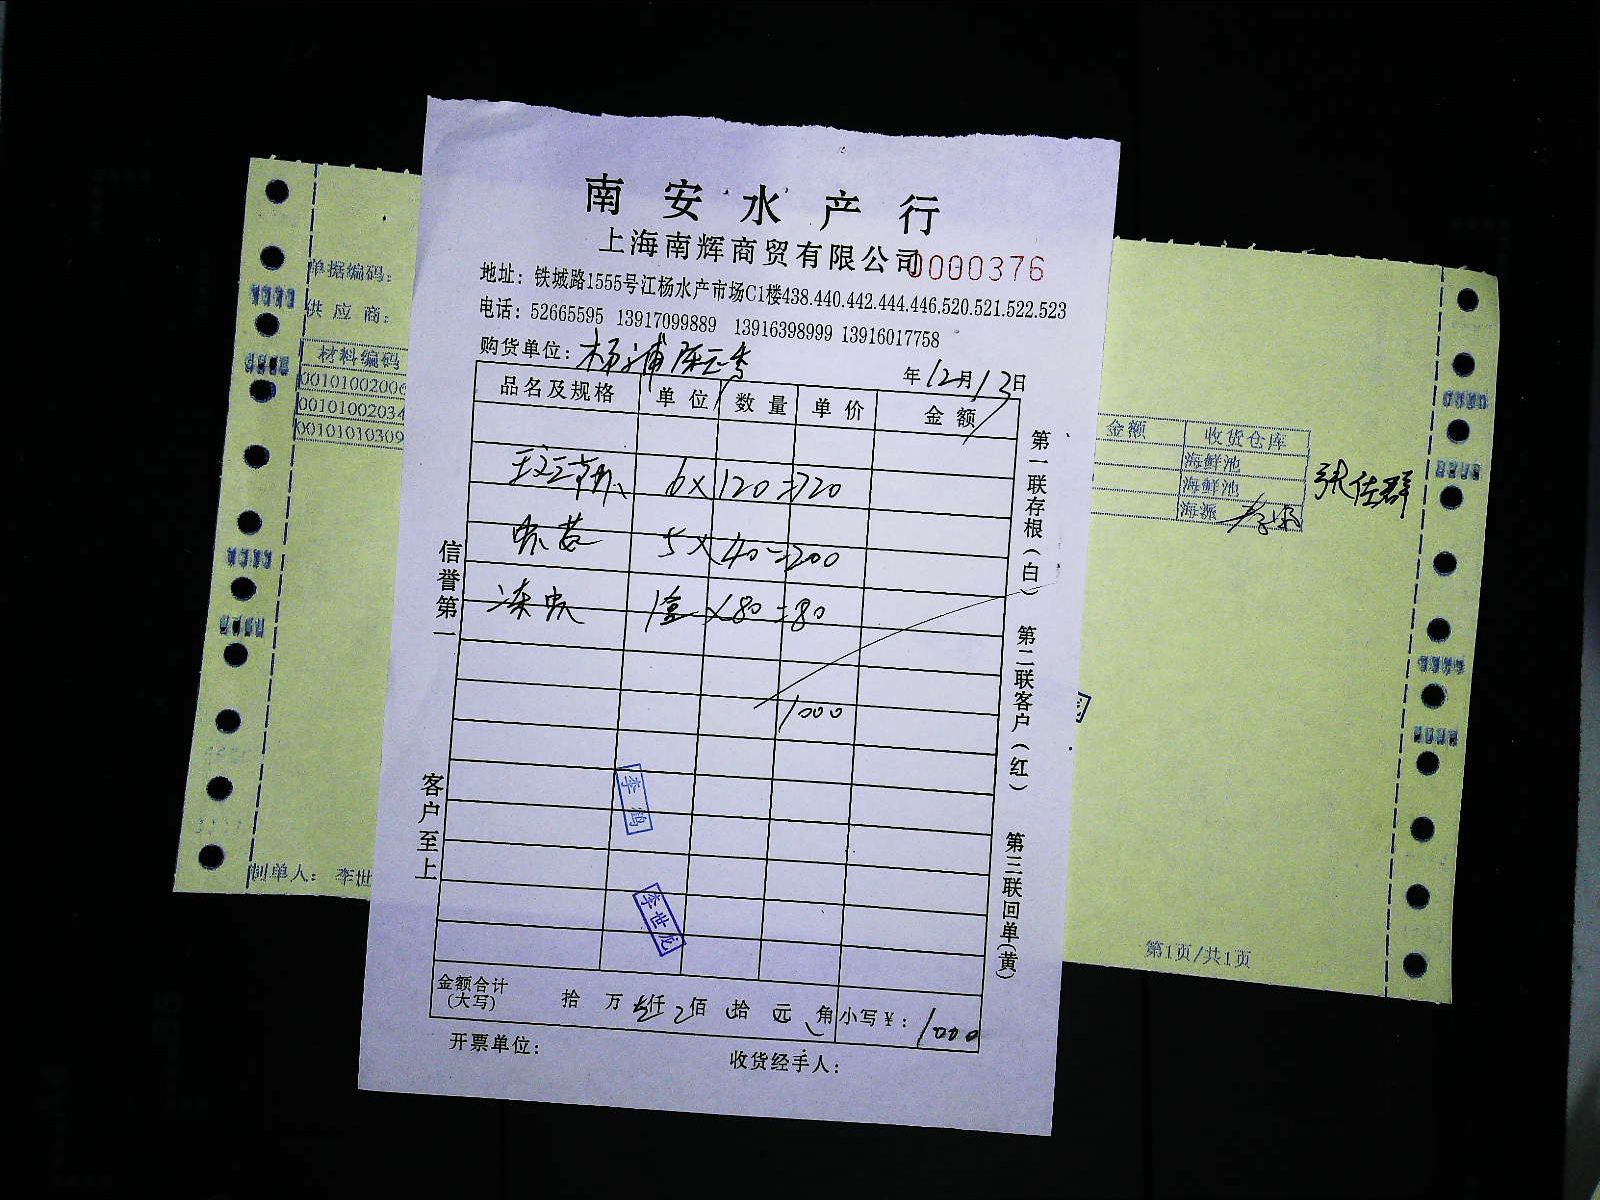 南安水产行
上海南辉商贸有限公司 0000376
地址：铁城路1555号江杨水产市场C1楼438.440.442.444.446.520.521.522.523
电话：52665595 13917099889 13916398999 13916017758
购货单位：杨浦
年12月13日
品名及规格 单位 数量 单价 金额
6×120=720
5×40=200
冻虾 1盒×80=80
1000
李鸿
李世龙
金额合计(大写) 拾 万 仟 佰 拾 元 角 小写¥：1000
开票单位： 收货经手人：
信誉第一
客户至上
第一联存根(白) 第二联客户(红) 第三联回单(黄)
单据编码：
供应商：
材料编码
00101002006
00101002034
00101010309
制单人：李世
金额 收货仓库
海鲜池
海鲜池
海派
张佐群
第1页/共1页